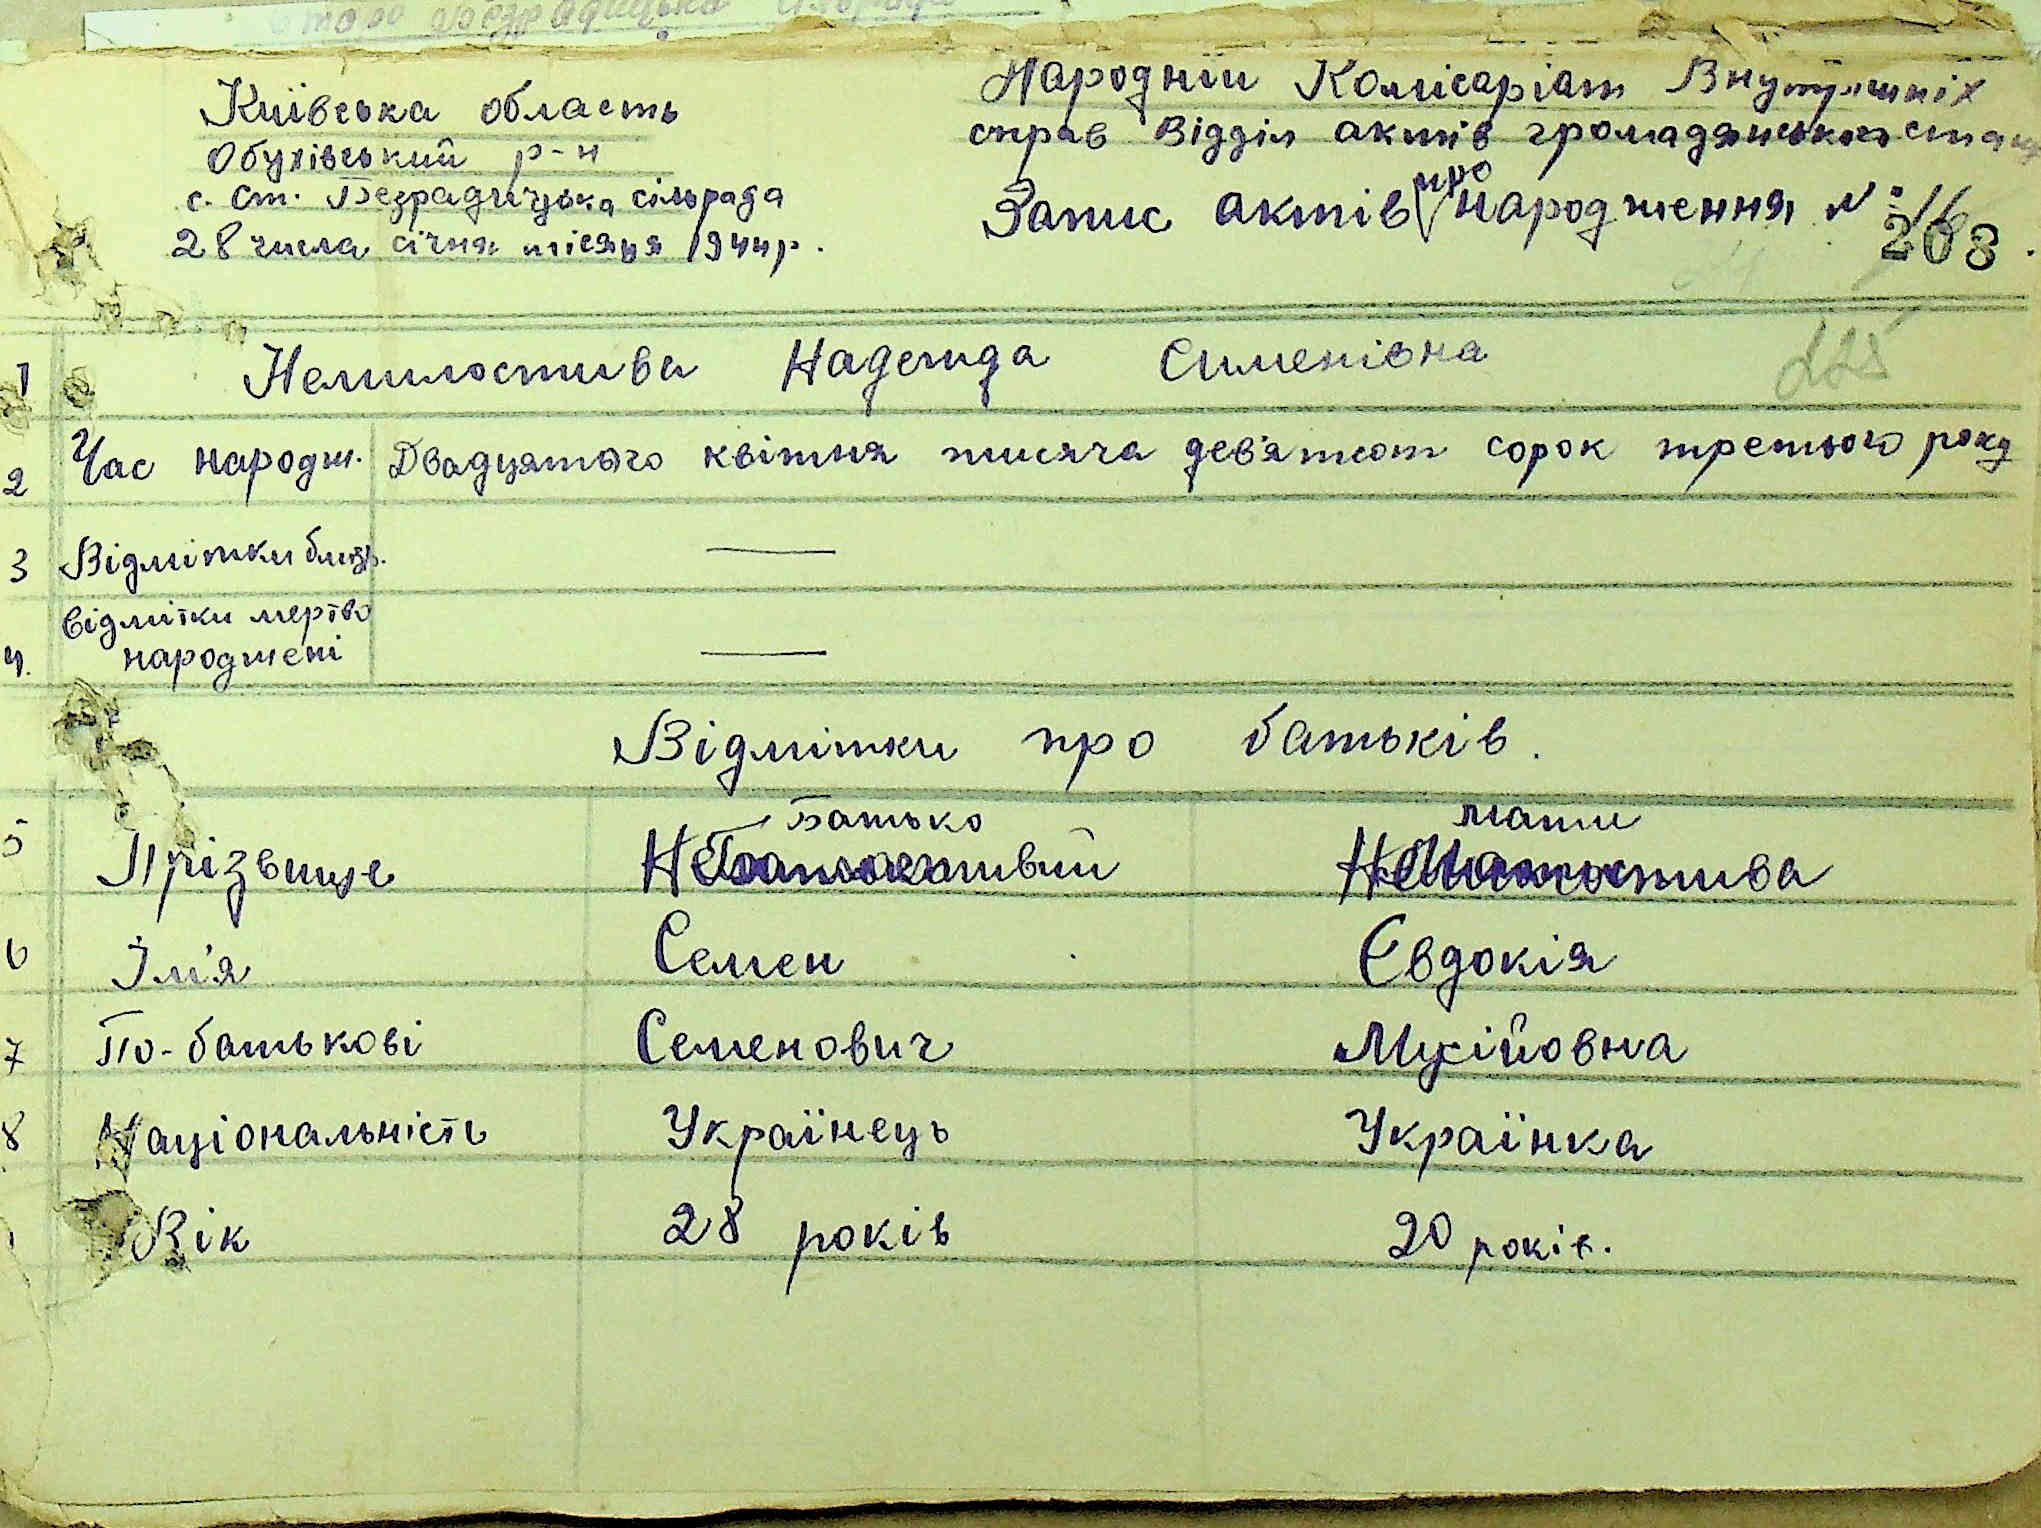 Київська область
Обухівський р-н
с. Ст. Безрадичуська сільрада
28 числа січня місяця 1944р.
Народній Комісаріат Внутрішніх
справ Відділ актів громадянського стану
Запис актів про народження №
208
225
1 Немилостива Надежда Сименівна
2 Час народж. Двадцятого квітня тисяча дев'ятсот сорок третього року
3 Відмітки близн. —
4. відмітки мертво
народжені —
Відмітки про батьків.
Батько мати
5 Прізвище Немилостивий Немилостива
6 Ім'я Семен Євдокія
7 По-батькові Семенович Мусійовна
8 Національність Українець Українка
Вік 28 років 20 років.